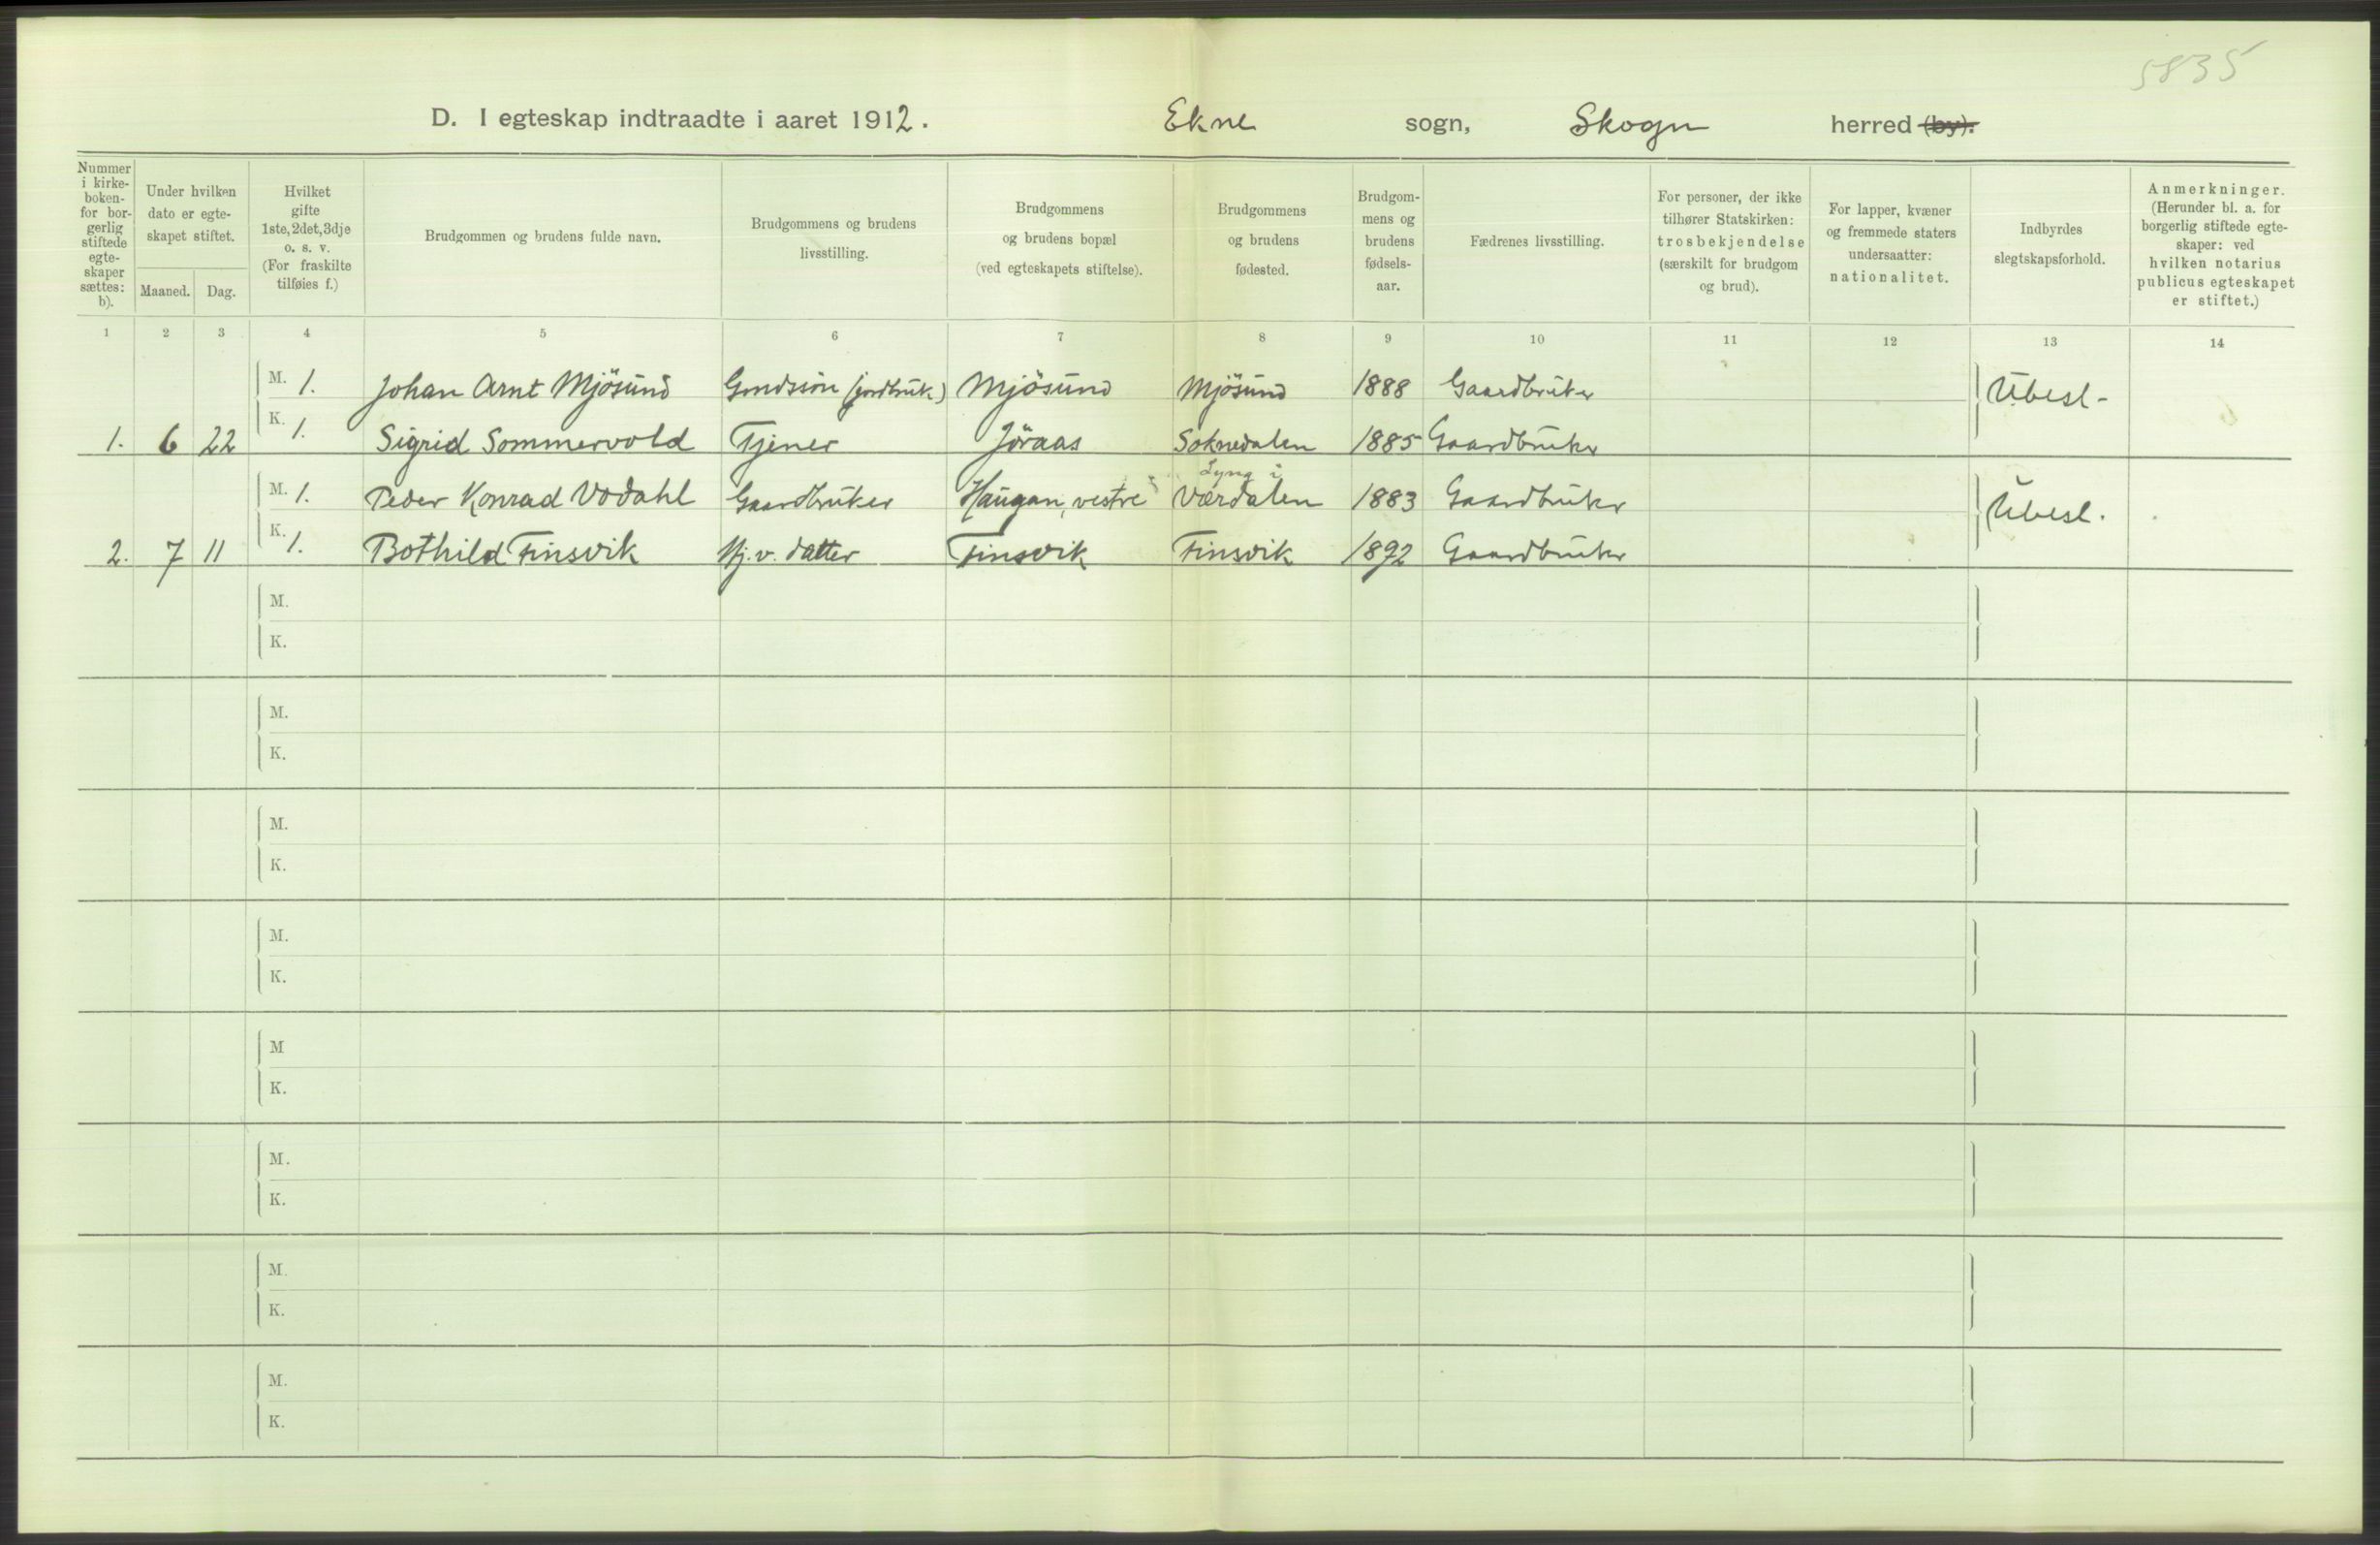 5835
D. I egteskap indtraadte i aaret 1912. Ekne sogn, Skogn herred (by).
Nummer i kirke-boken- for bor-gerlig stiftede egte-skaper sættes: b).
Under hvilken dato er egte-skapet stiftet.
Maaned. Dag.
Hvilket gifte 1ste, 2det, 3dje o. s. v. (For fraskilte tilføies f.)
Brudgommen og brudens fulde navn.
Brudgommens og brudens livsstilling.
Brudgommens og brudens bopæl (ved egteskapets stiftelse).
Brudgommens og brudens fødested.
Brudgom-mens og brudens fødsels-aar.
Fædrenes livsstilling.
For personer, der ikke tilhører Statskirken: trosbekjendelse (særskilt for brudgom og brud).
For lapper, kvæner og fremmede staters undersaatter: nationalitet.
Indbyrdes slegtskapsforhold.
Anmerkninger. (Herunder bl. a. for borgerlig stiftede egte-skaper: ved hvilken notarius publicus egteskapet er stiftet.)
1 2 3 4 5 6 7 8 9 10 11 12 13 14
M. 1. Johan Arnt Mjösund (jordbruk.) Mjösund Mjösund 1888 Gaardbruker Ubesl.
1. 6 22 K. 1. Sigrid Sommervold Tjener Jöraas Soknedalen 1885 Gaardbruker
Lyng i
M. 1. Peder Konrad Vodahl Gaardbruker Haugan, vestre Værdalen 1883 Gaardbruker Ubesl.
2. 7 11 K. 1. Bothild Finsvik Hj. v. datter Finsvik Finsvik 1892 Gaardbruker
M.
K.
M.
K.
M.
K.
M.
K.
M
K.
M.
K.
M.
K.
M.
K.